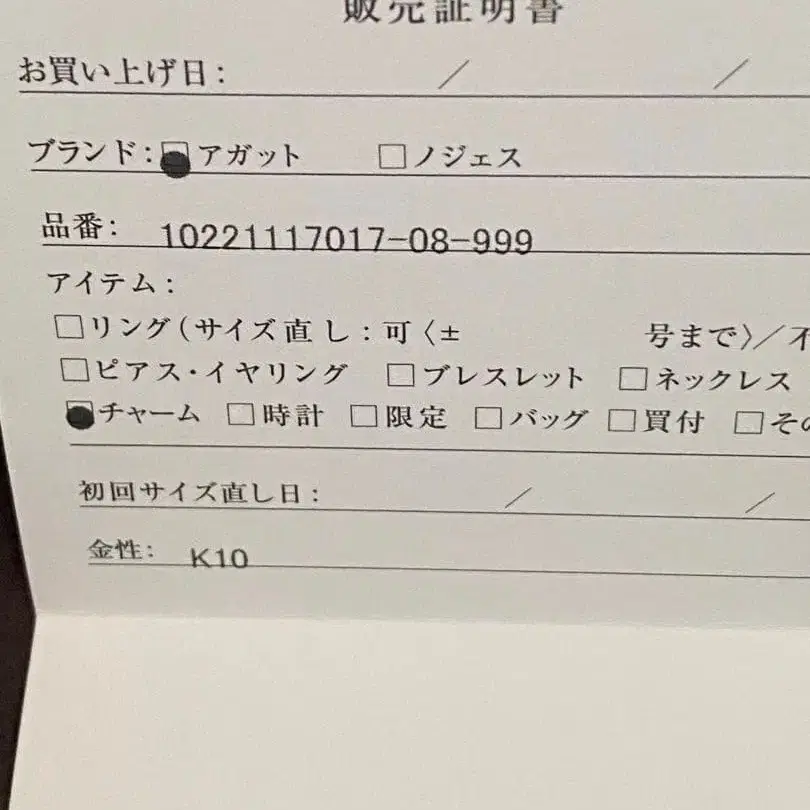 販売証明書
お買い上げ日: / /
ブランド: アガット □ノジェス
品番: 10221117017-08-999
アイテム:
□リング(サイズ直し:可〈± 号まで〉/不
□ピアス・イヤリング □ブレスレット □ネックレス
チャーム □時計 □限定 □バッグ □買付 □その
初回サイズ直し日: / /
金性: K10